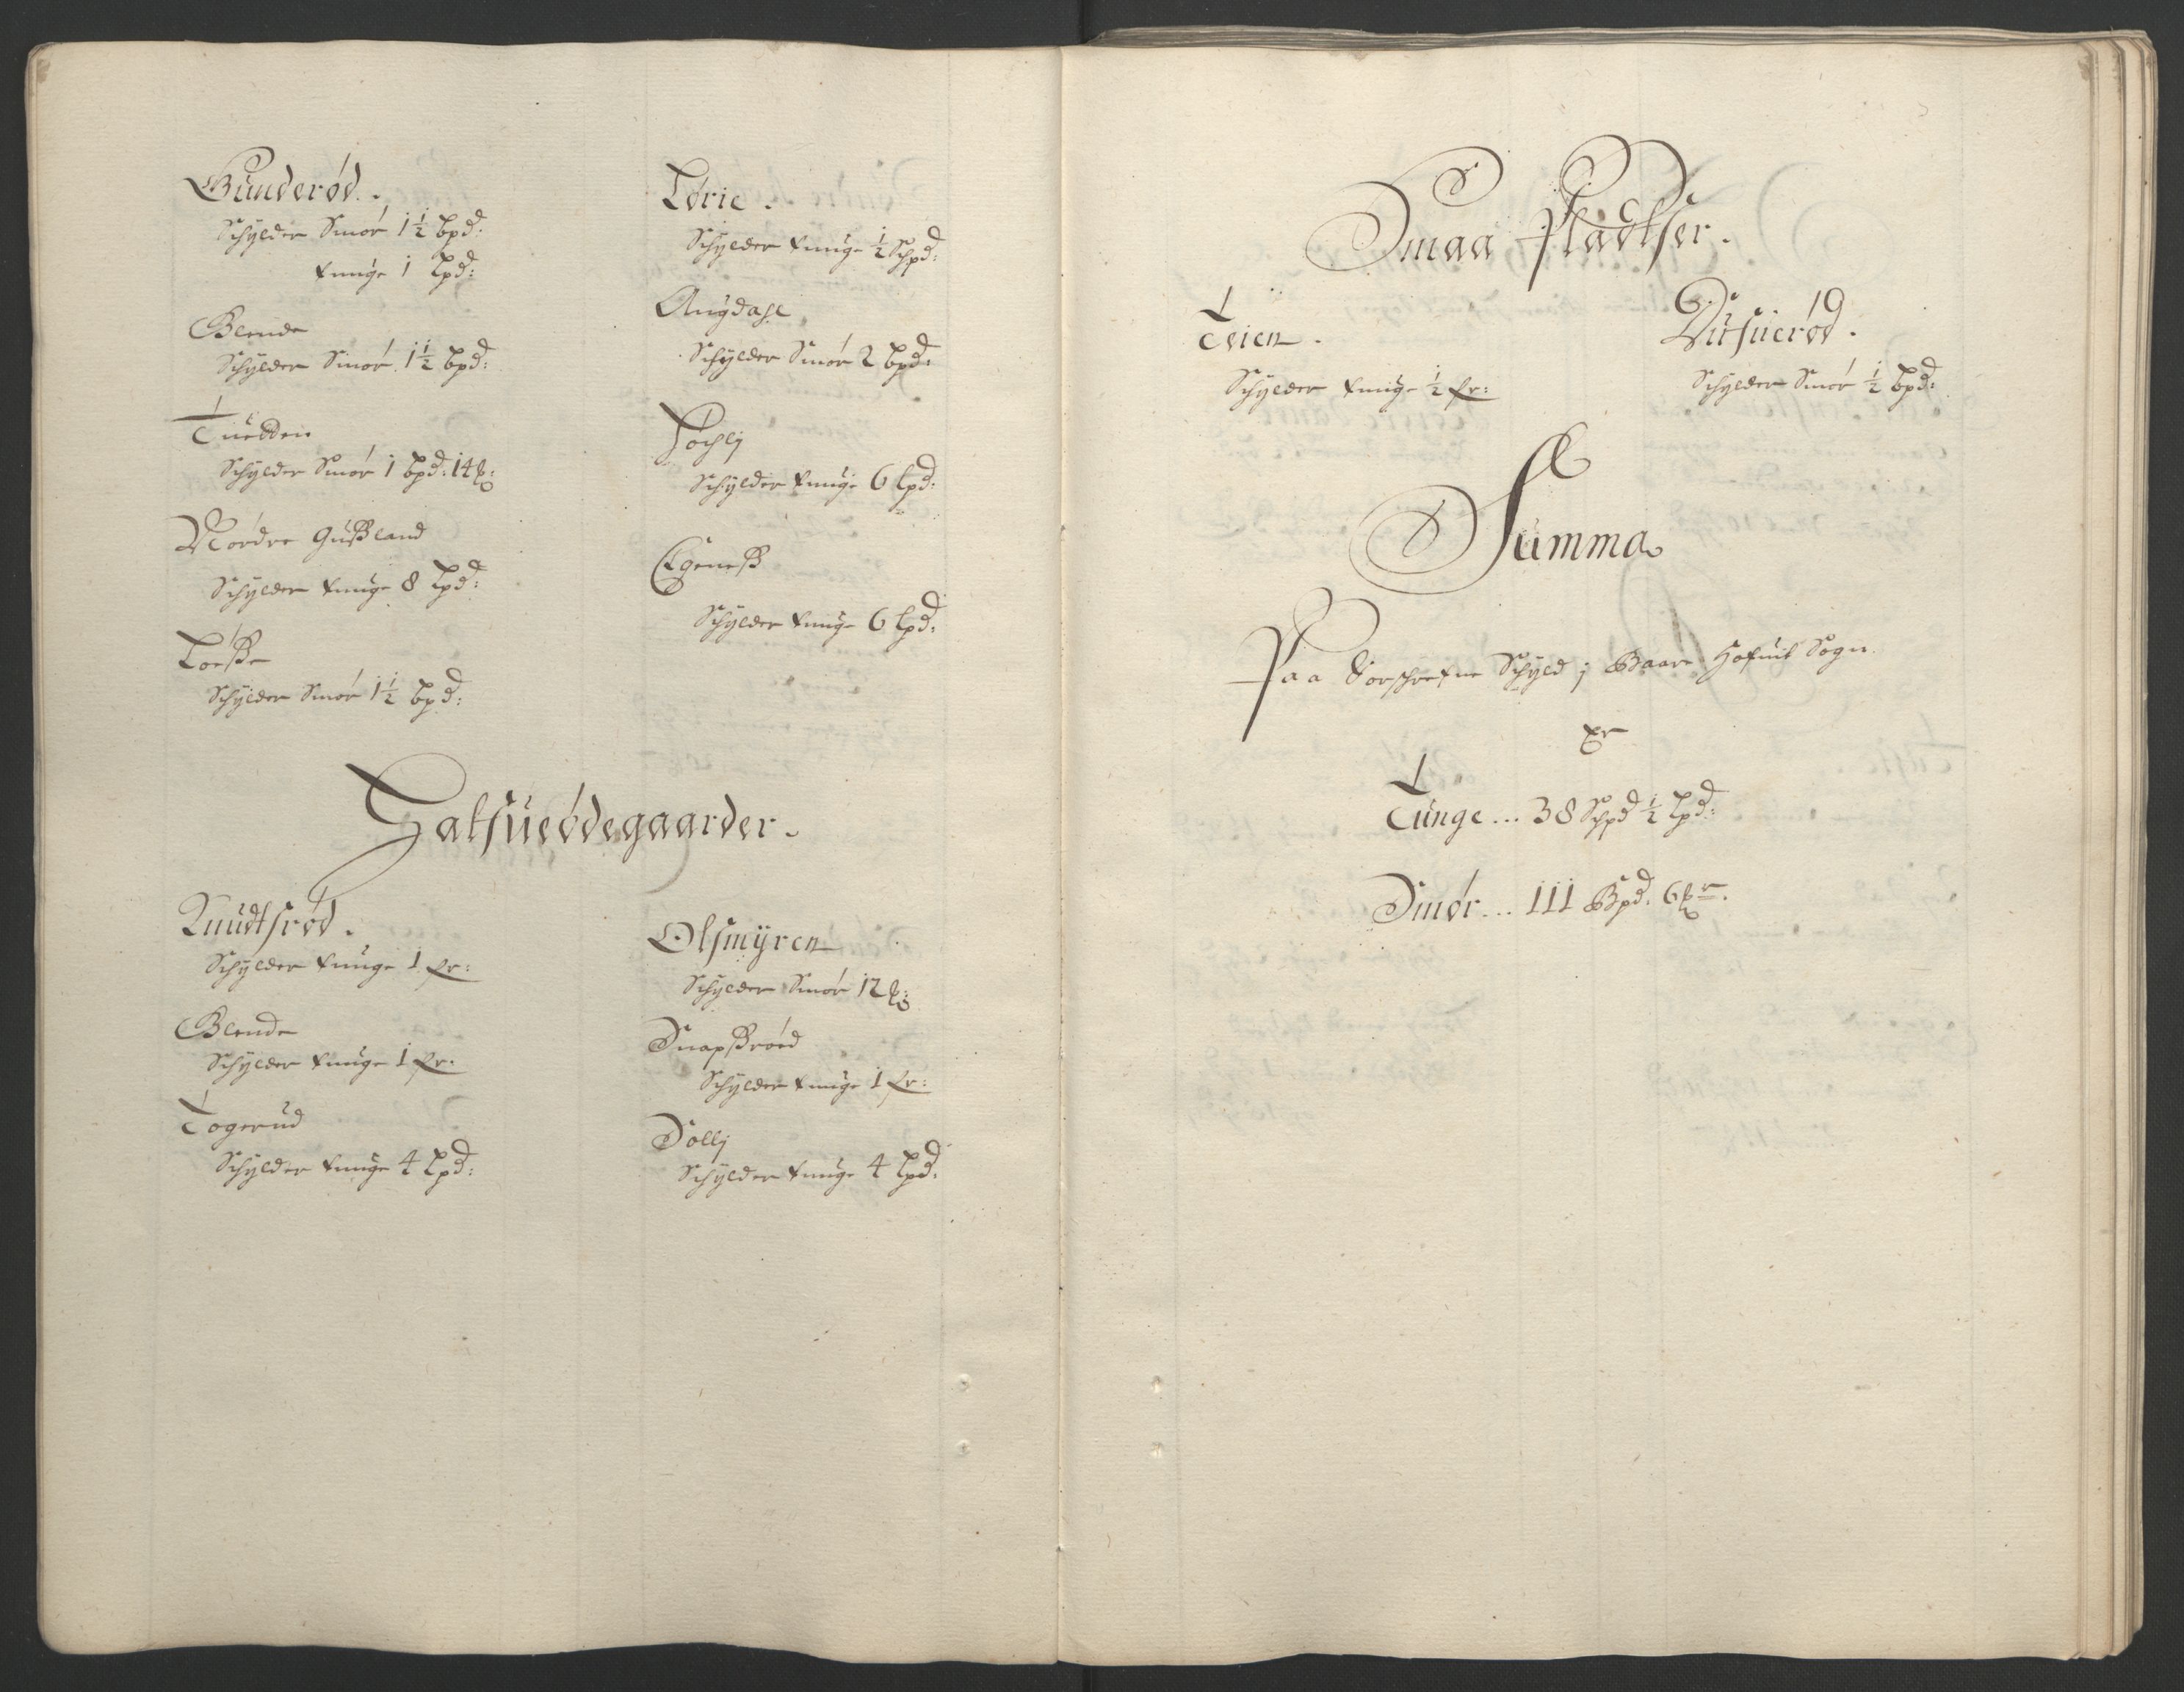 Gunderød.
Schylder Smør 1½ bpd:
tunge 1 Lpd:
Blende
Schylder Smør 1½ bpd:
Tuedden
Schylder Smør 1 bpd: 14 ℔:
Nordre Gußland
Schylder tunge 8 Lpd:
Løeße
Schylder Smør 1½ bpd:
Lørie.
Schylder tunge ½ Schpd:
Augdahl
Schylder Smør 2 bpd:
Føchlj
Schylder tunge 6 Lpd:
Egeneß
Schylder tunge 6 Lpd:
Halfueødegaarder.
Knudtsrød.
Schylder tunge 1 fr:
Blende
Schylder tunge 1 fr:
Togerud
Schylder tunge 4 Lpd:
Olsmÿren
Schylder Smør 12 ℔:
Snapßrøed
Schylder tunge 1 fr:
Sollj
Schylder tunge 4 Lpd:
Smaa Pladtser.
Teien.
Schylder tunge ½ fr:
Schylder Smør ½ bpd:
Summa
Paa forschrefne Schyld j Baare Hofuit Sogn
Er
Tunge... 38 Schpd ½ Lpd:
Smør... 111 Bpd. 6 ℔r.